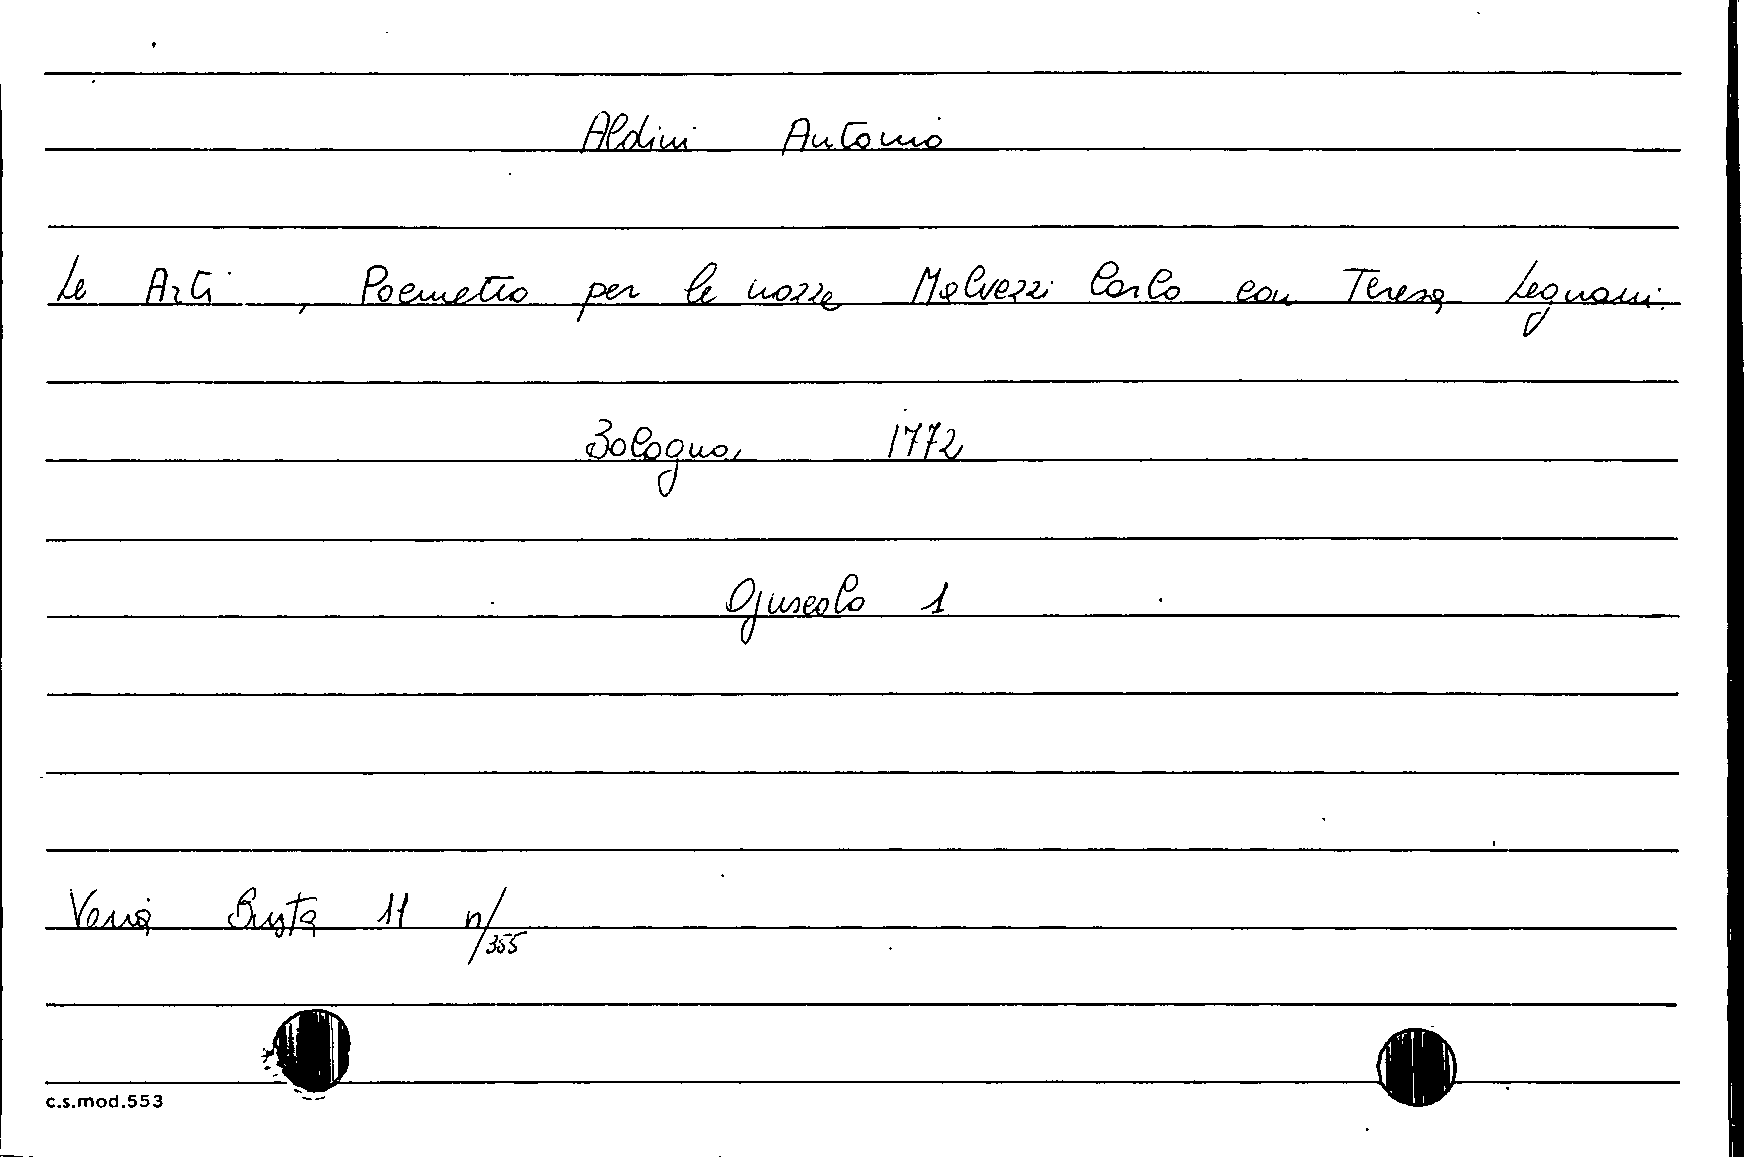 Aldini Antonio
Le Arti, Poemetto per le nozze Malvezzi Carlo con Teresa Legnani.
Bologna, 1772
Opuscolo 1
Varia Busta 11 n/355
c.s.mod.553